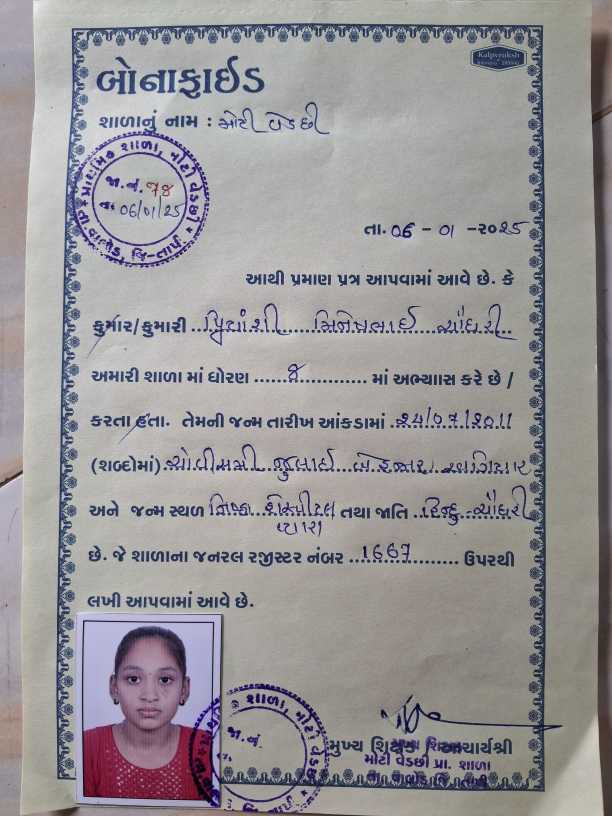 Kalpvruksh
બોનાફાઈડ
શાળાનું નામ : મોટી વેડછી
પ્રાથમિક શાળા, મોટી વેડછી
જા.નં. ૧૪
તા. 06/01/25
તા. વાલોડ, જિ-તાપી
તા. 06 - 01 -૨૦૨5
આથી પ્રમાણ પત્ર આપવામાં આવે છે. કે
કુમાર/કુમારી ..પ્રિયાંશી.....મિનેષભાઈ....ચૌધરી..
અમારી શાળા માં ધોરણ ......૮............ માં અભ્યાસ કરે છે /
કરતા હતા. તેમની જન્મ તારીખ આંકડામાં .૨૪/૦૭/૨૦૧૧
(શબ્દોમાં).ચોવીસમી..જુલાઈ...બે હજાર..અગિયાર
અને જન્મ સ્થળ હોસ્પીટલ તથા જાતિ ..હિન્દુ..ચૌધરી
વ્યારા
છે. જે શાળાના જનરલ રજીસ્ટર નંબર ...1667......... ઉપરથી
લખી આપવામાં આવે છે.
શાળા, મોટી વેડછી
જા.નં.
તા.
મુખ્ય શિક્ષક / આચાર્યશ્રી
મુખ્ય શિક્ષક
મોટી વેડછી પ્રા. શાળા
તા. વાલોડ જિ. તાપી